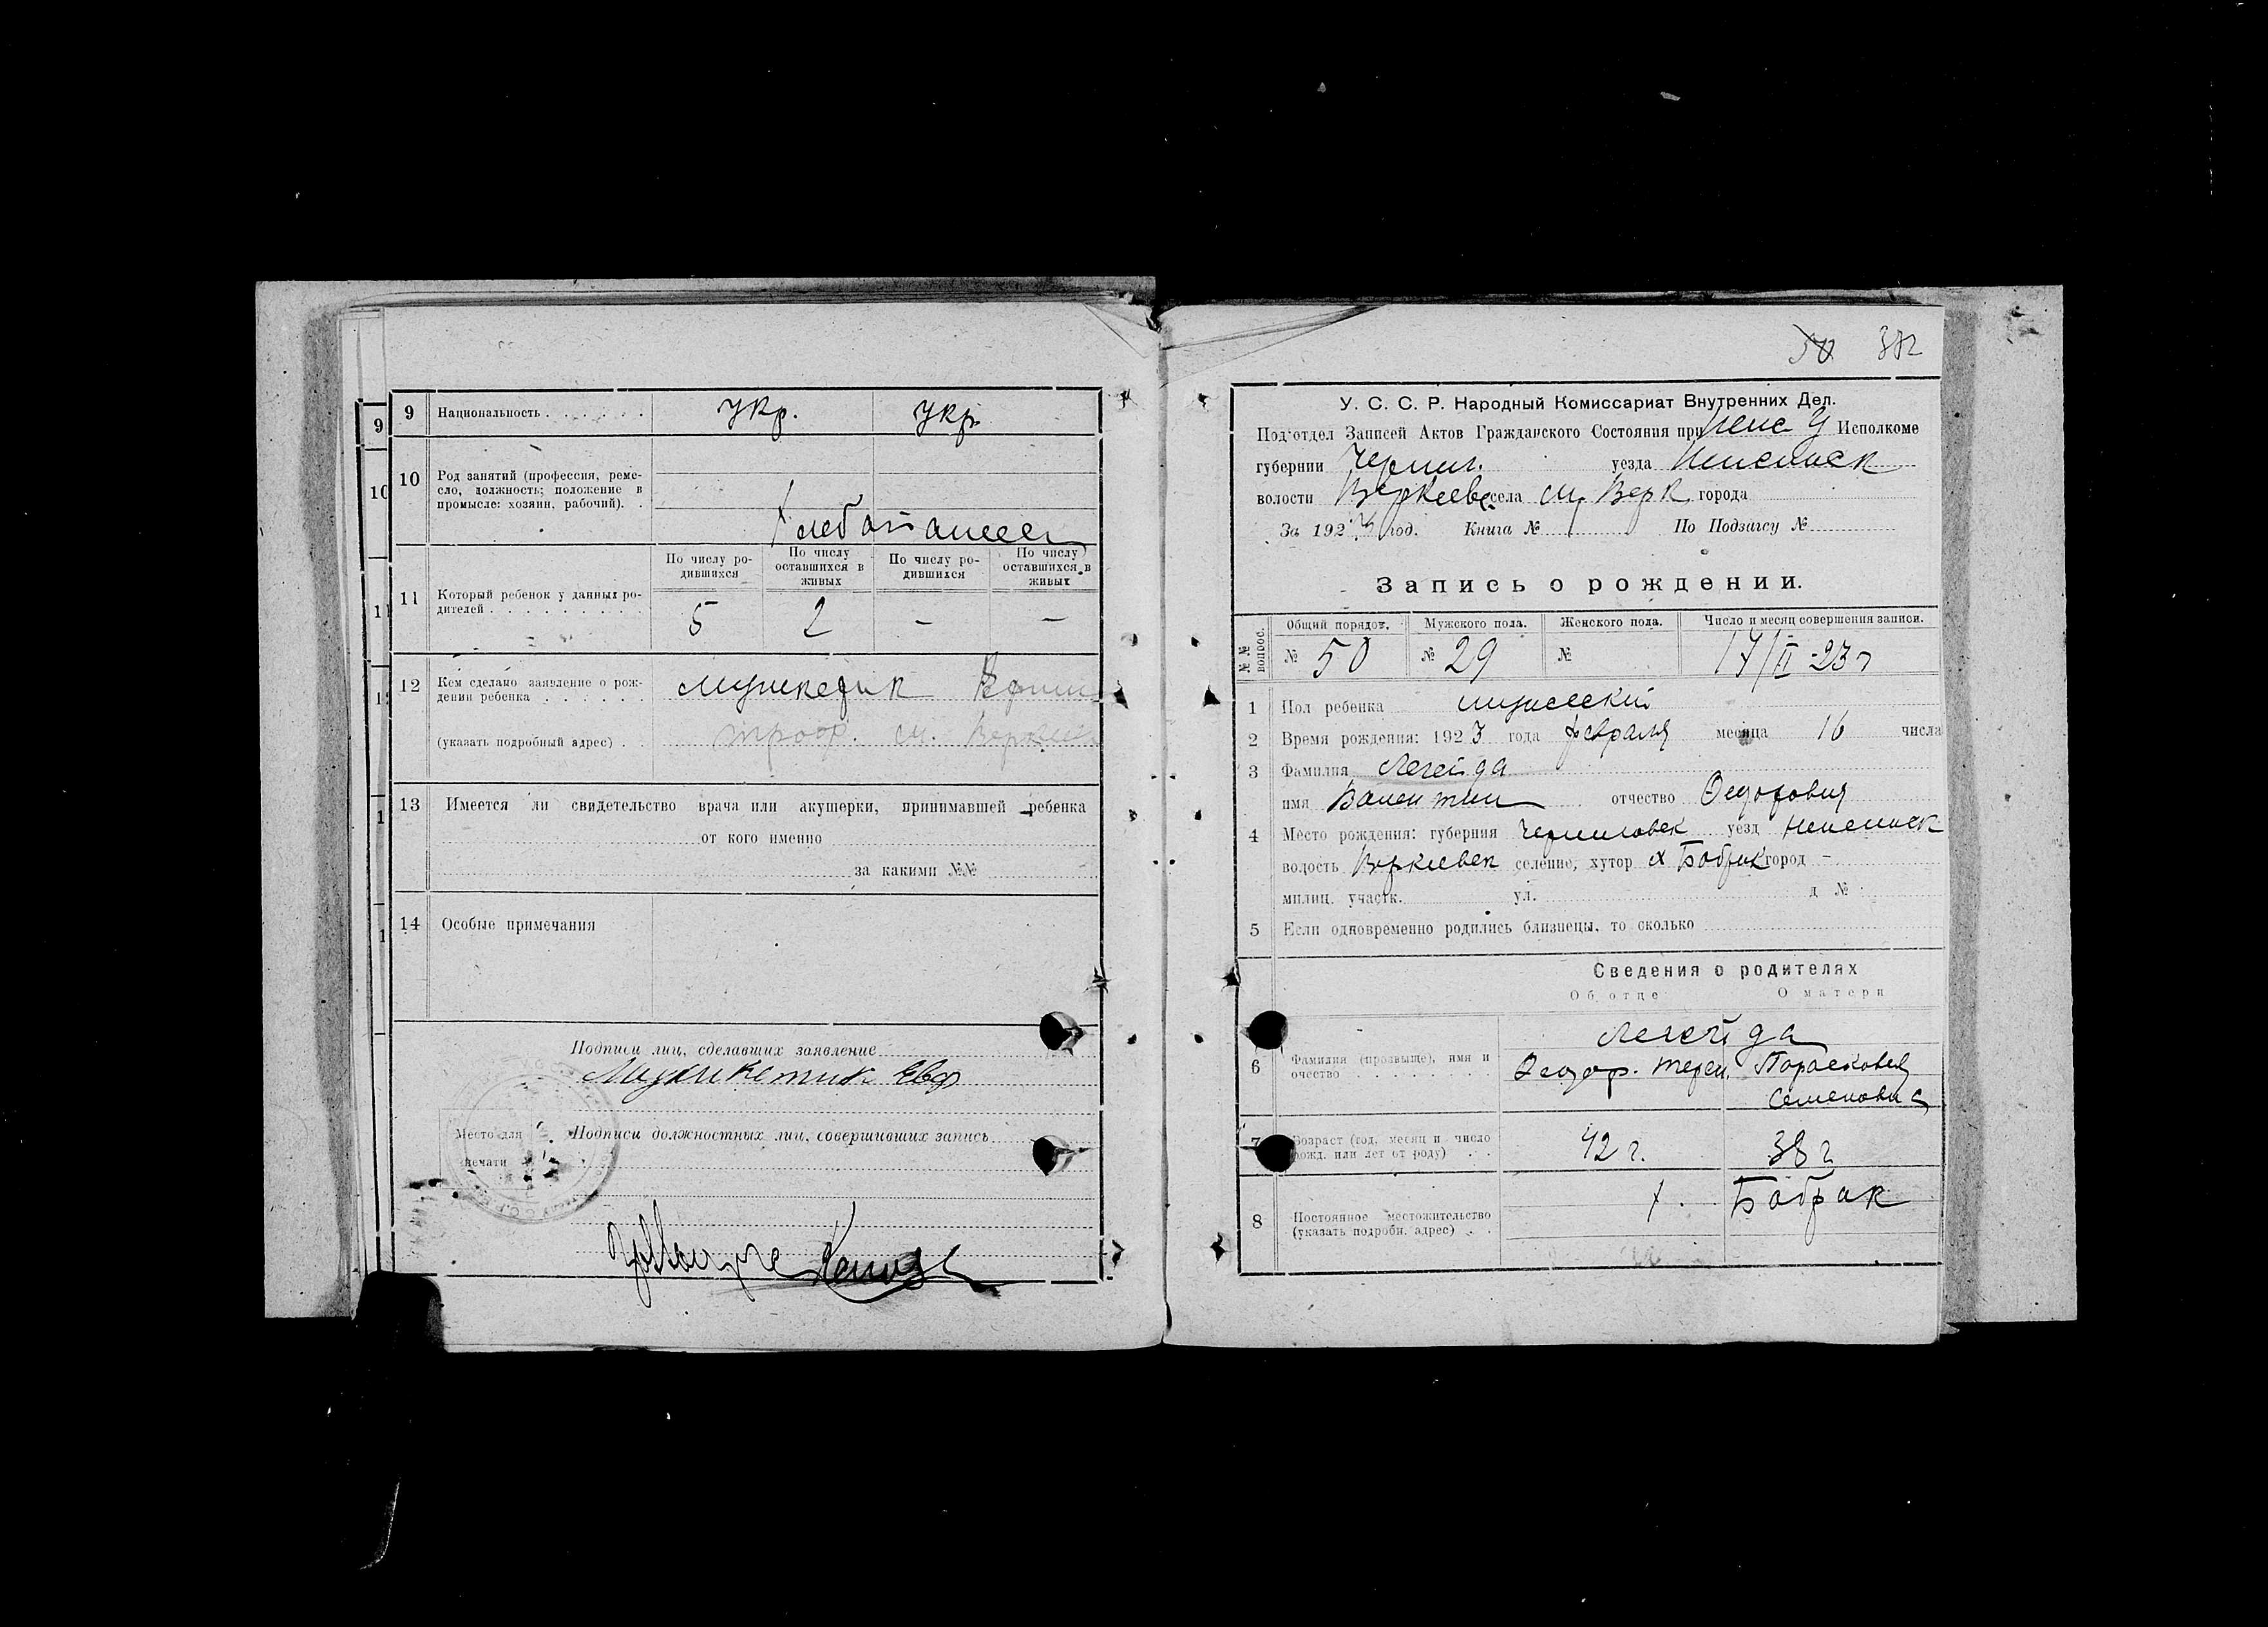 9 Национальность . . . . . . укр. укр.
10 Род занятий (профессия, реме-
сло, должность; положение в
промысле: хозяин, рабочий). .
хлебопашец
11 Который ребенок у данных ро-
дителей . . . . . . . . .
По числу ро-
дившихся
По числу
оставшихся в
живых
По числу ро-
дившихся
По числу
оставшихся в
живых
5 2 – –
12 Кем сделано заявление о рож-
дении ребенка . . . . . .
(указать подробный адрес) . .
троф. м.
13 Имеется ли свидетельство врача или акушерки, принимавшей ребенка
от кого именно
за какими №№
14 Особые примечания
Подписи лиц, сделавших заявление
Евф
Место для
печати
Подписи должностных лиц, совершивших запись
50 382
У. С. С. Р. Народный Комиссариат Внутренних Дел.
Под‘отдел Записей Актов Гражданского Состояния при Исполкоме
губернии Черниг. уезда Неженск
волости Веркиев. села м. Верк города
За 1923 год. Книга № По Подзагсу №
Запись о рождении.
№№ вопрос.
Общий порядок. Мужского пола. Женского пола. Число и месяц совершения записи.
№ 50 № 29 № 17/II-23 г
1 Пол ребенка мужеский
2 Время рождения: 1923 года февраля месяца 16 числа
3 Фамилия Легейда
имя Валентин отчество Федорович
4 Место рождения: губерния Черниговск уезд Неженск
волость Веркиевск селение, хутор х Бобрик город –
милиц. участк. ул. д №
5 Если одновременно родились близнецы, то сколько
Сведения о родителях
Об отце О матери
6 Фамилия (прозвище), имя и
очество . . . . . . . .
Легейда
Федор. Терен. Парасковея
Семеновна
7 Возраст (год, месяц и число
рожд. или лет от роду) . .
42 г. 38 г
8 Постоянное местожительство
(указать подробн. адрес) . .
х. Бобрик